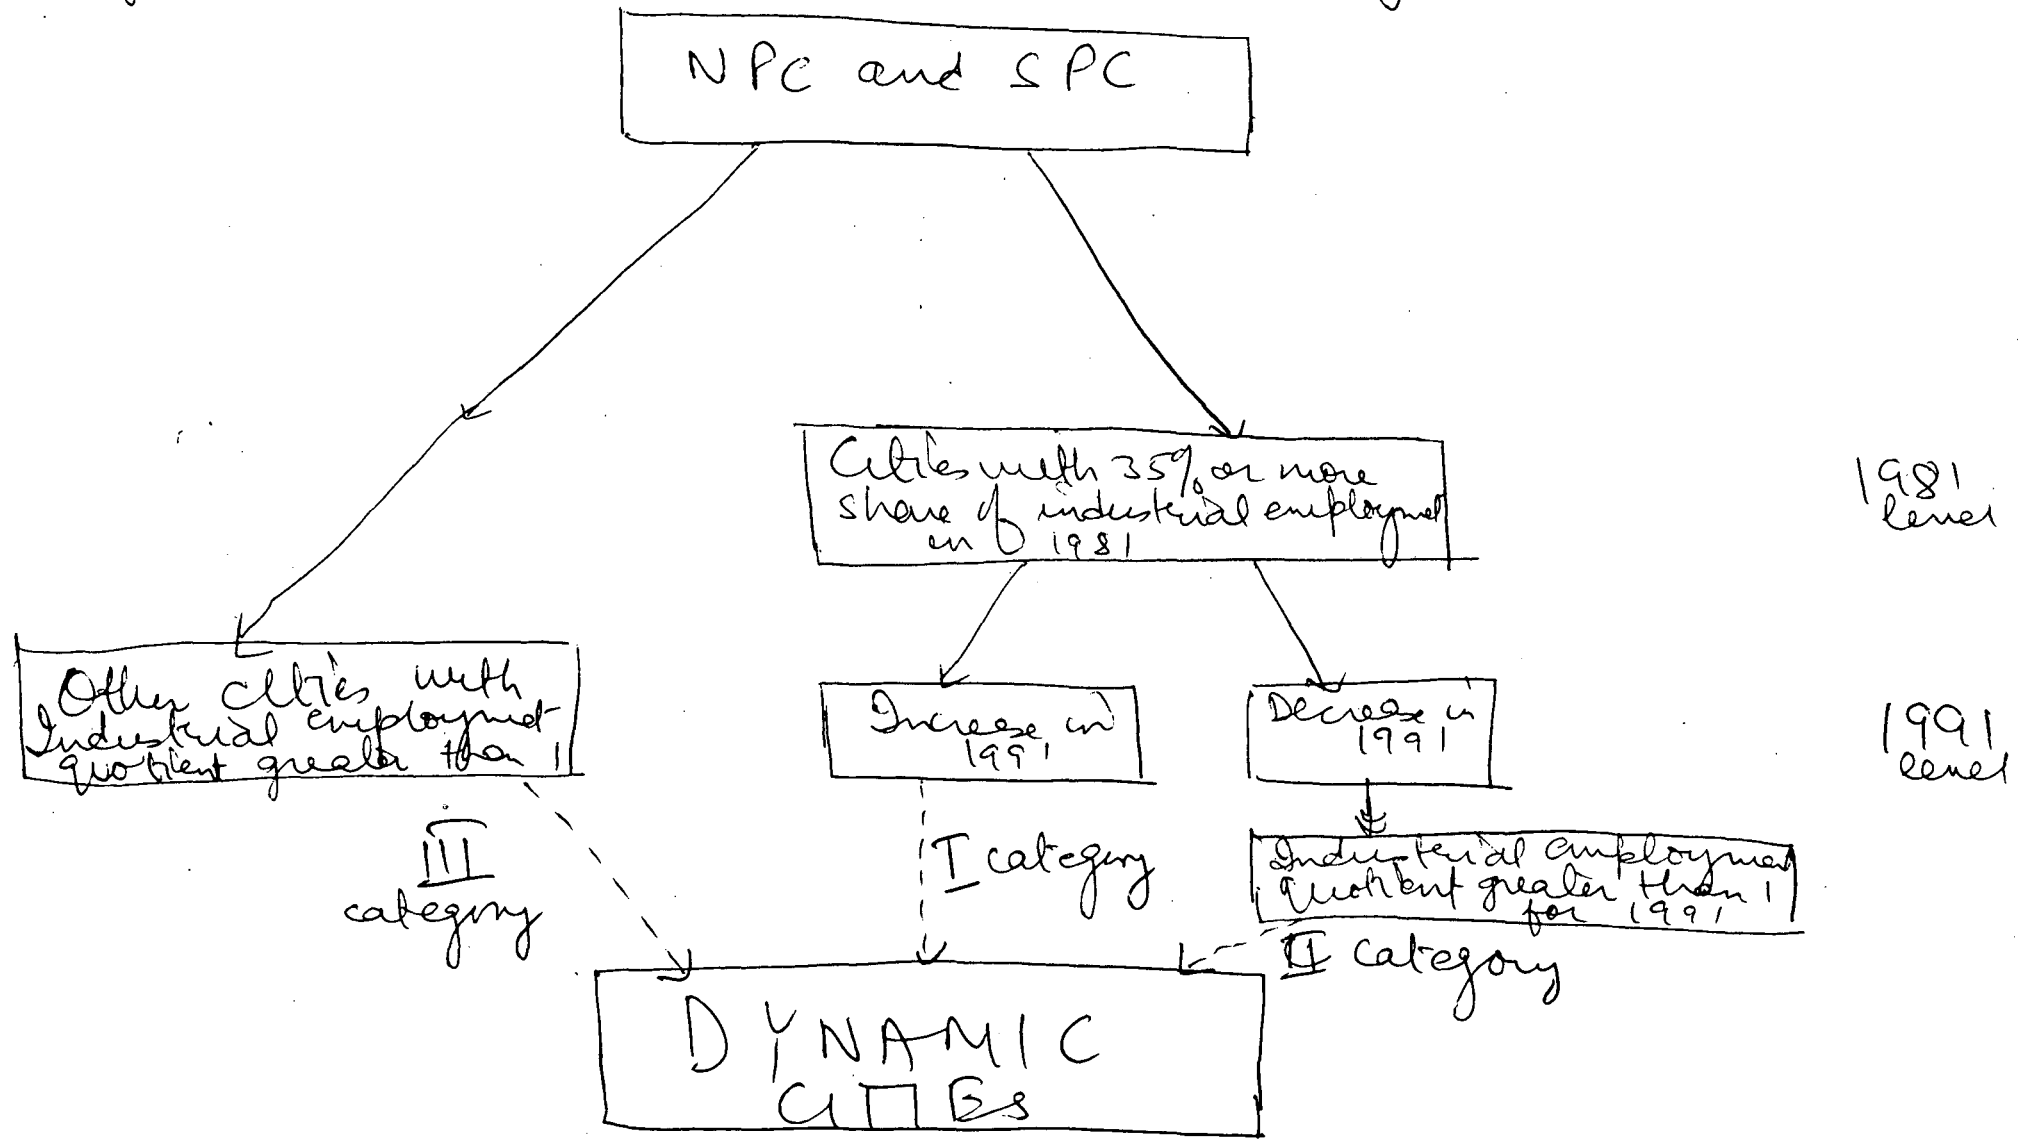 NPC and SPC
Cities with 35% or more
share of industrial employmet
in 1981
1981
level
Other cities with
Industrial employmet
quotient greater than 1
Increase in
1991
Decrease in
1991
1991
level
III
category
I category
Industrial employmen
quotient greater than 1
for 1991
II category
DYNAMIC
CITIES